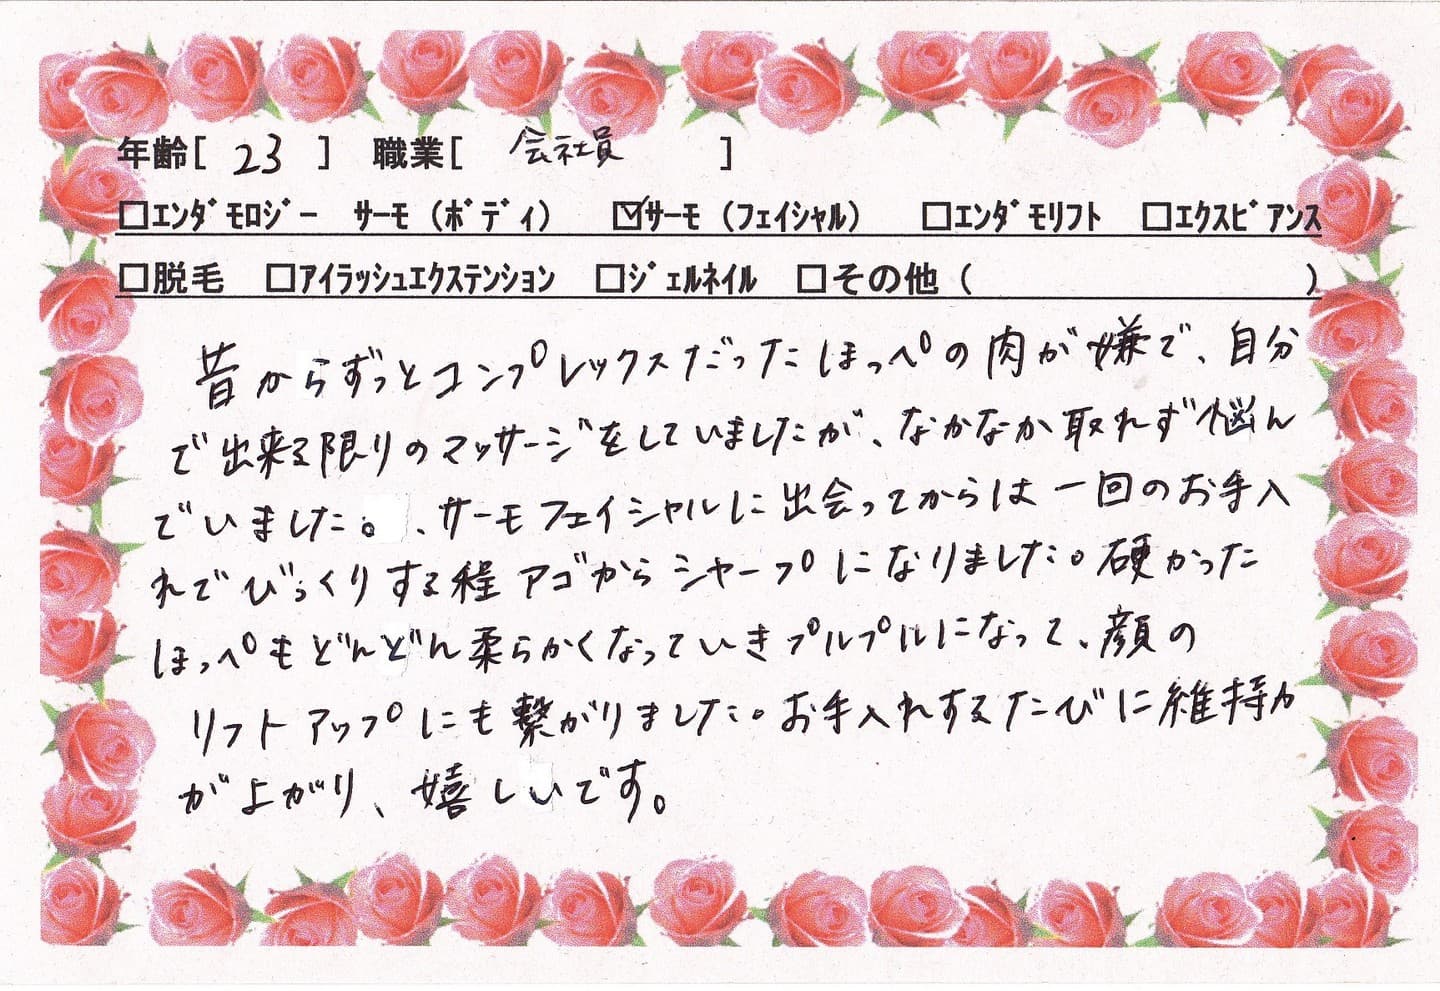 年齢[ 23 ] 職業[ 会社員 ]
□エンダモロジー サーモ（ボディ） ☑サーモ（フェイシャル） □エンダモリフト □エクスビアンス
□脱毛 □アイラッシュエクステンション □ジェルネイル □その他（ ）
昔からずっとコンプレックスだったほっぺの肉が嫌で、自分
で出来る限りのマッサージをしていましたが、なかなか取れず悩ん
でいました。、サーモフェイシャルに出会ってからは一回のお手入
れでびっくりする程アゴからシャープになりました。硬かった
ほっぺもどんどん柔らかくなっていきプルプルになって、顔の
リフトアップにも繋がりました。お手入れするたびに維持力
が上がり、嬉しいです。